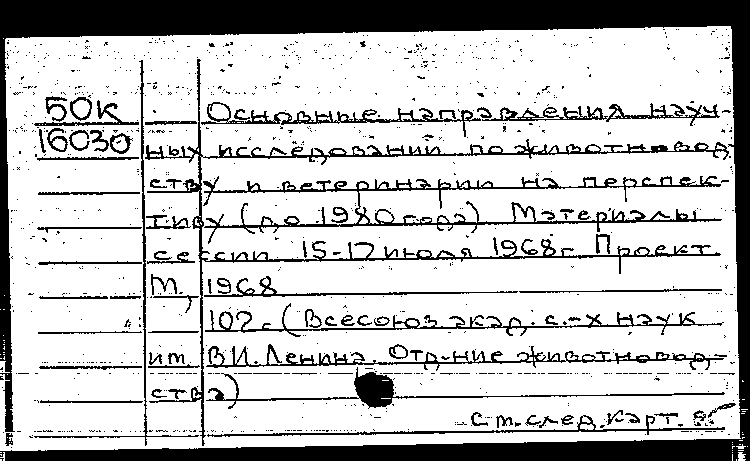 50к
16030
Основные направления науч-
ных исследований по животновод-
ству и ветеринарии на перспек-
тиву (до 1980 года) Материалы
сессии 15-17 июля 1968г Проект
М, 1968
102с (Всесоюз акад. с.-х наук
им. В.И. Ленина. Отд-ние животновод-
ства)
См. след. карт.